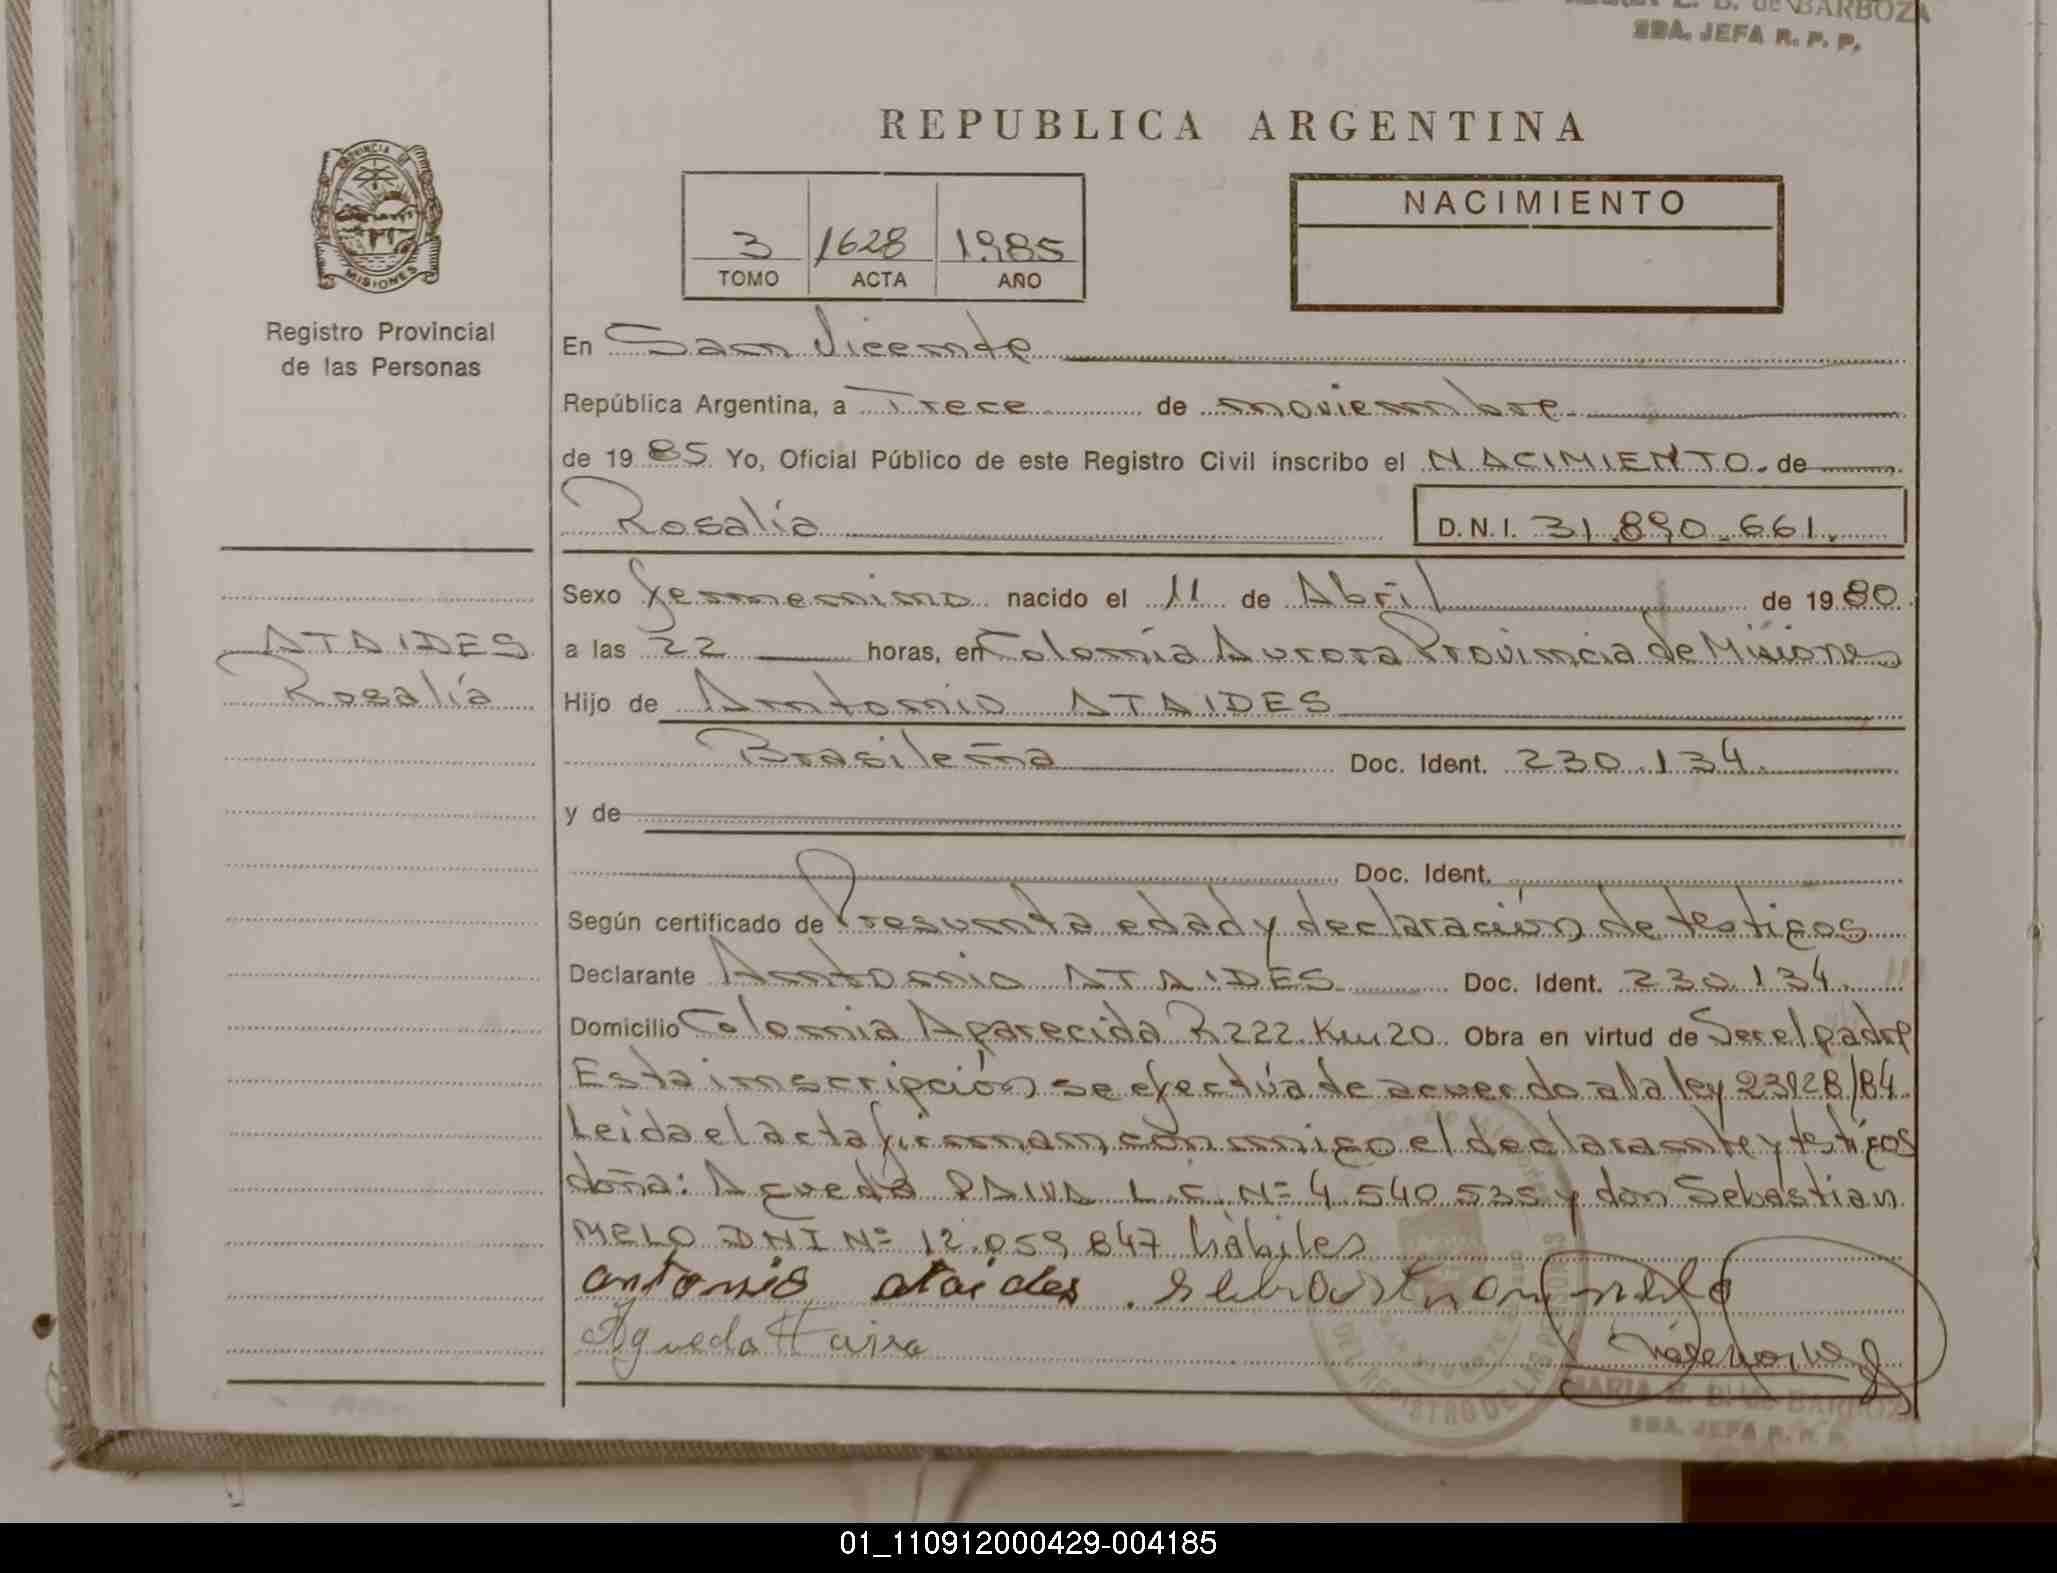 de BARBOZA
SBA. JEFA R. P. P.
REPUBLICA ARGENTINA
PROVINCIA DE
MISIONES
Registro Provincial
de las Personas
3 1628 1985
TOMO ACTA AÑO
NACIMIENTO
En San Vicente
República Argentina, a Trece de noviembre
de 1985 Yo, Oficial Público de este Registro Civil inscribo el NACIMIENTO. de
Rosalía D.N.I. 31.890.661.
ATAIDES
Rosalía
Sexo femenino nacido el 11 de Abril de 1980
a las 22 horas, en Colonia Aurora Provincia de Misiones
Hijo de Antonio ATAIDES
Brasileña Doc. Ident. 230.134.
y de
Doc. Ident.
Según certificado de Presunta edad y declaración de testigos
Declarante Antonio ATAIDES Doc. Ident. 230.134.
Domicilio Colonia Aparecida R222. Km 20. Obra en virtud de Ser el padre
Esta inscripción se efectúa de acuerdo a la ley 23128/84.
Leida el acta firman conmigo el declarante y testigos
doña: Agueda PAIVA L.C. Nº 4.540.535 y don Sebastian
MELO DNI Nº 12.059.847 hábiles
antonio ataides. sebastian melo
Agueda
MARIA E. B. de BARBOZA
SBA. JEFA R. P. P.
01_110912000429-004185